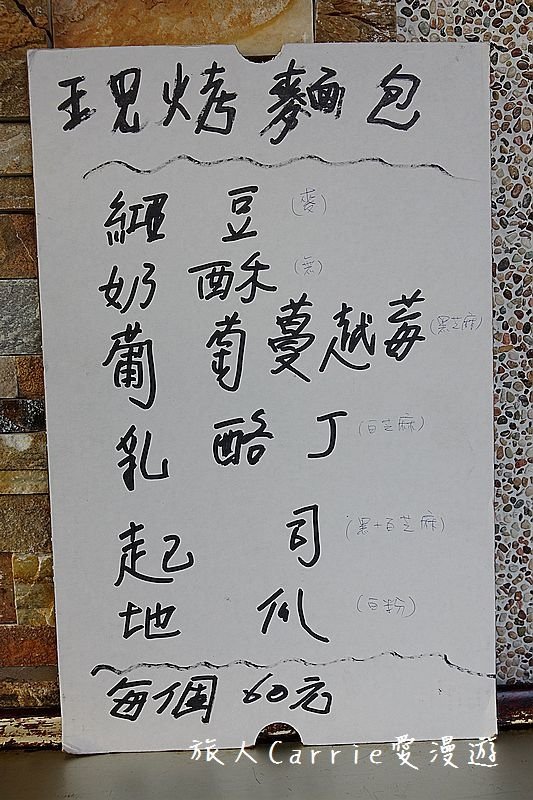 現烤麵包
紅豆(麥)
奶酥
葡萄蔓越莓(黑芝麻)
乳酪丁(白芝麻)
起司(黑+白芝麻)
地瓜(白粉)
每個60元
旅人Carrie愛漫遊